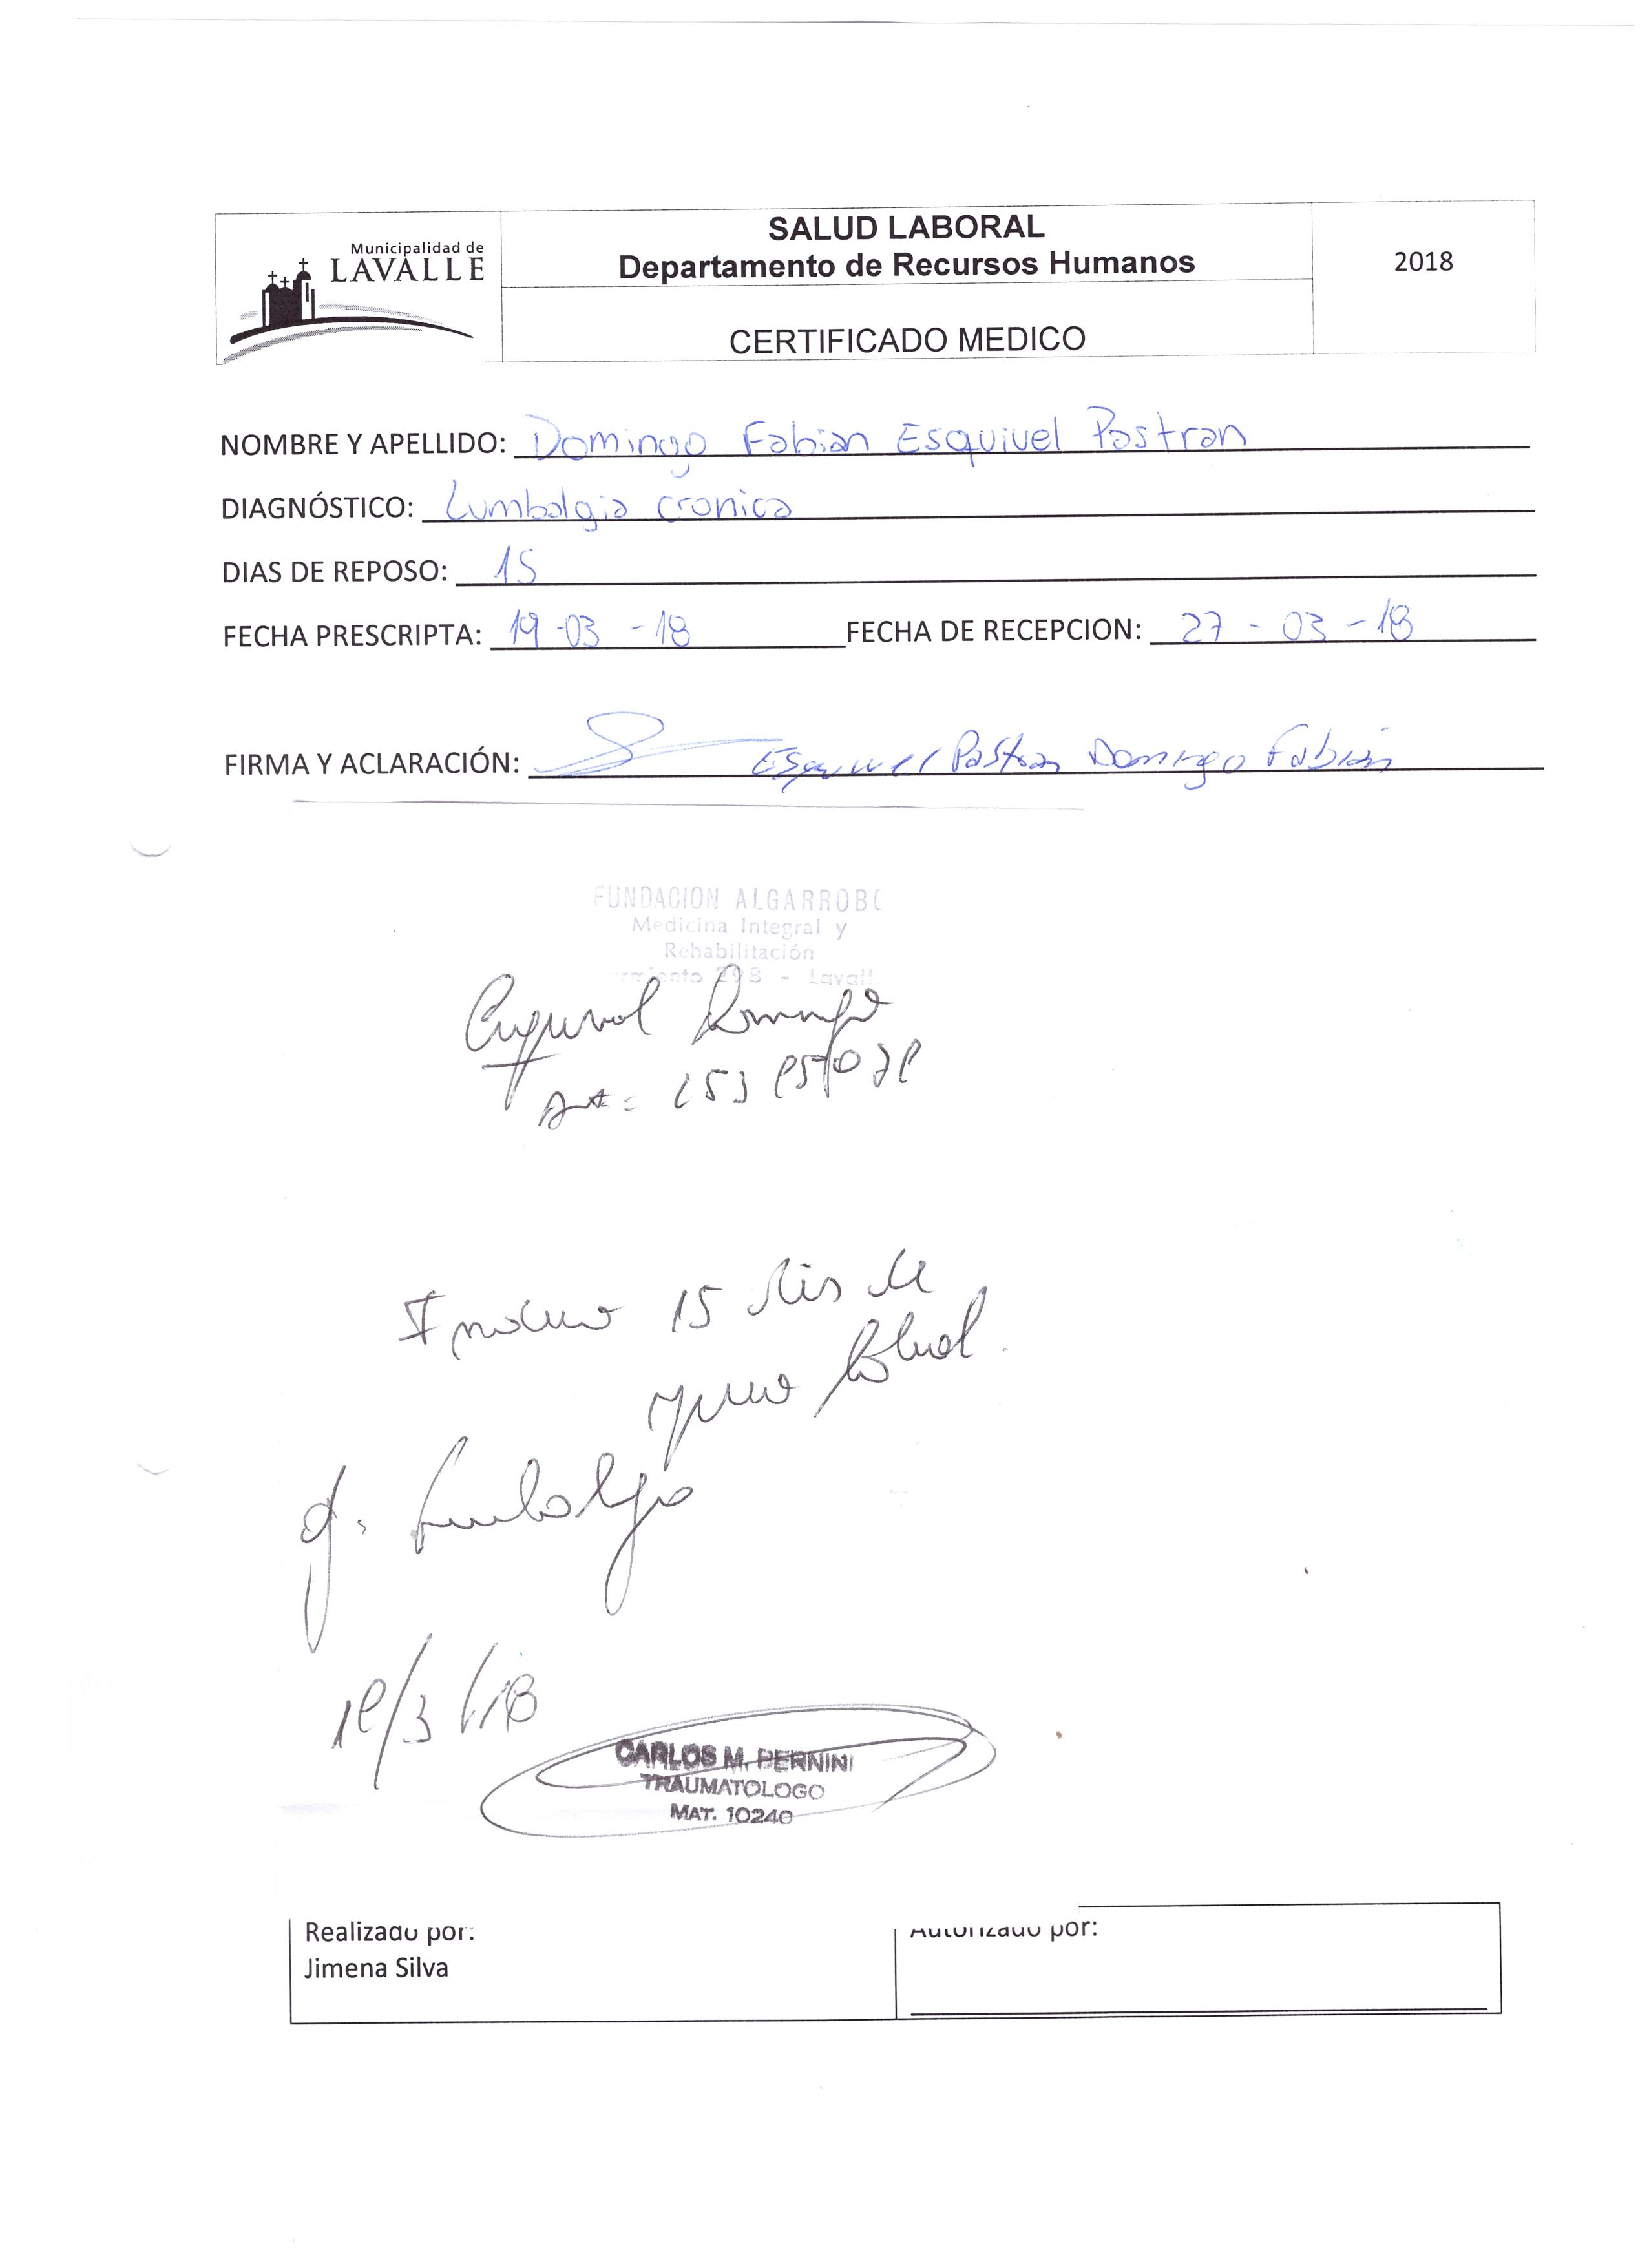 Municipalidad de
LAVALLE
SALUD LABORAL
Departamento de Recursos Humanos
CERTIFICADO MEDICO
2018
NOMBRE Y APELLIDO: Domingo Fabian Esquivel Pastran
DIAGNÓSTICO: Lumbalgia cronica
DIAS DE REPOSO: 15
FECHA PRESCRIPTA: 19-03-18 FECHA DE RECEPCION: 27-03-18
FIRMA Y ACLARACIÓN: Esquivel Pastran Domingo Fabián
FUNDACION ALGARROBO
Medicina Integral y
Rehabilitación
298 - Lavall
Esquivel Domingo
15 dias de
Lumbalgia
19/3/18
CARLOS M. PERNINI
TRAUMATOLOGO
MAT. 10240
Realizado por:
Jimena Silva
Autorizado por: